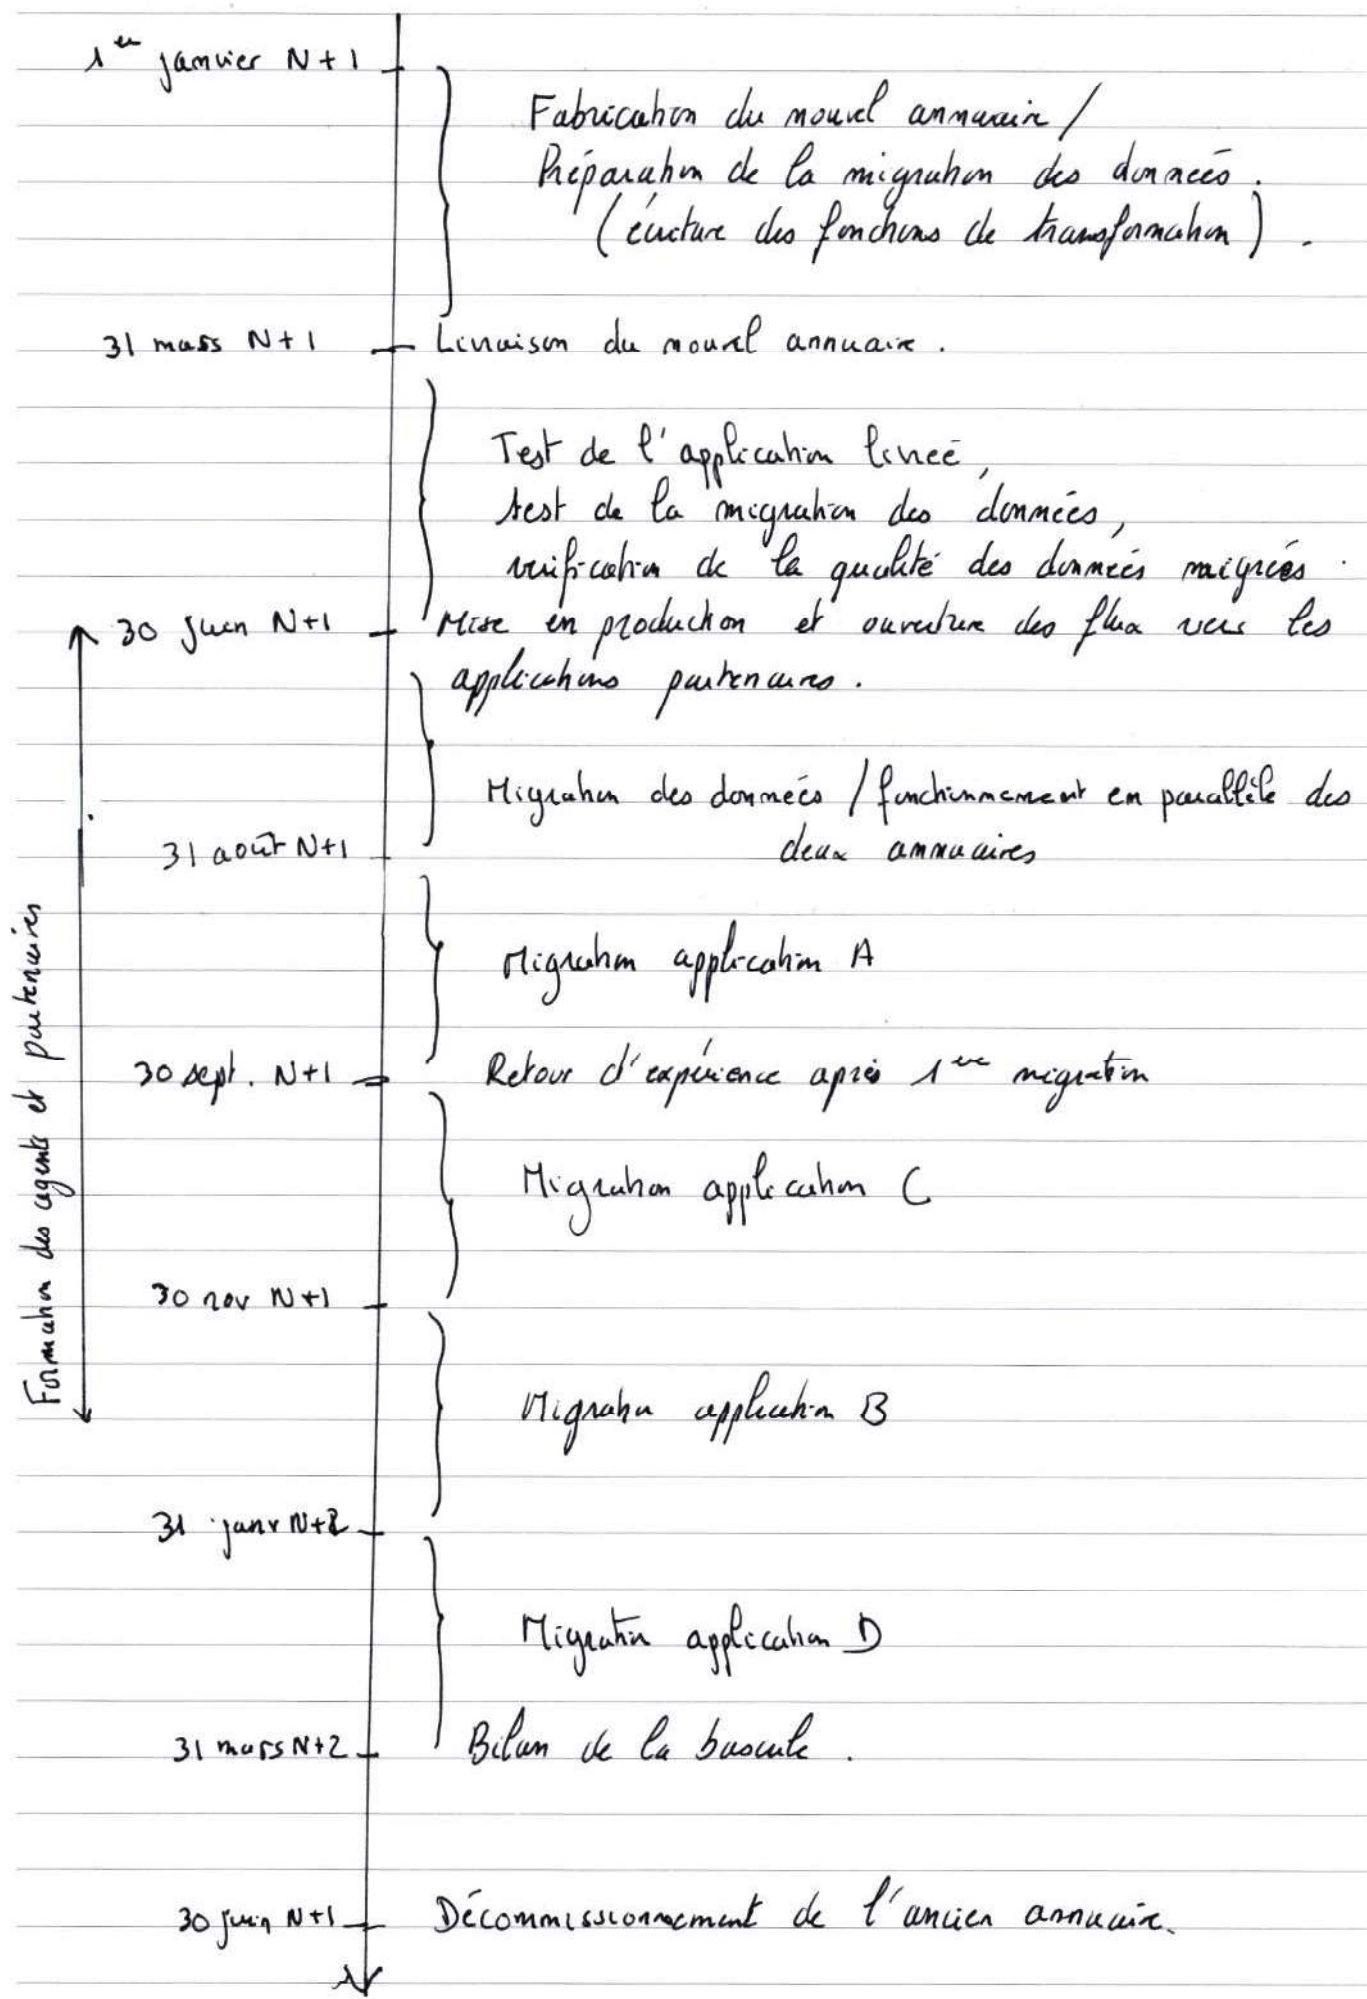 1er janvier N+1
Fabrication du nouvel annuaire /
Préparation de la migration des données.
(écriture des fonctions de transformation).
31 mars N+1
Livraison du nouvel annuaire.
Test de l'application livrée,
test de la migration des données,
vérification de la qualité des données migrées.
30 juin N+1
Mise en production et ouverture des flux vers les
applications partenaires.
Migration des données / fonctionnement en parallèle des
deux annuaires
31 août N+1
Migration application A
30 sept. N+1
Retour d'expérience après 1ère migration
Migration application C
30 nov N+1
Migration application B
31 janv N+2
Migration application D
31 mars N+2
Bilan de la bascule.
30 juin N+1
Décommissionnement de l'ancien annuaire.
Formation des agents et partenaires